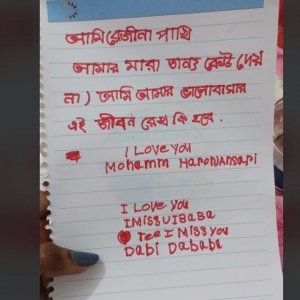 আমি রোজীনা পাখি
আমার মারা তাবহ কেউ দেয়
না) আমি আমার ভালোবাসার
এই জীবন রেখে কি হবে.
I Love you
Mohamm HaroNAnsari
I Love You
IMissUIBaBa
Tee I Miss you
Dabi DaBaBa